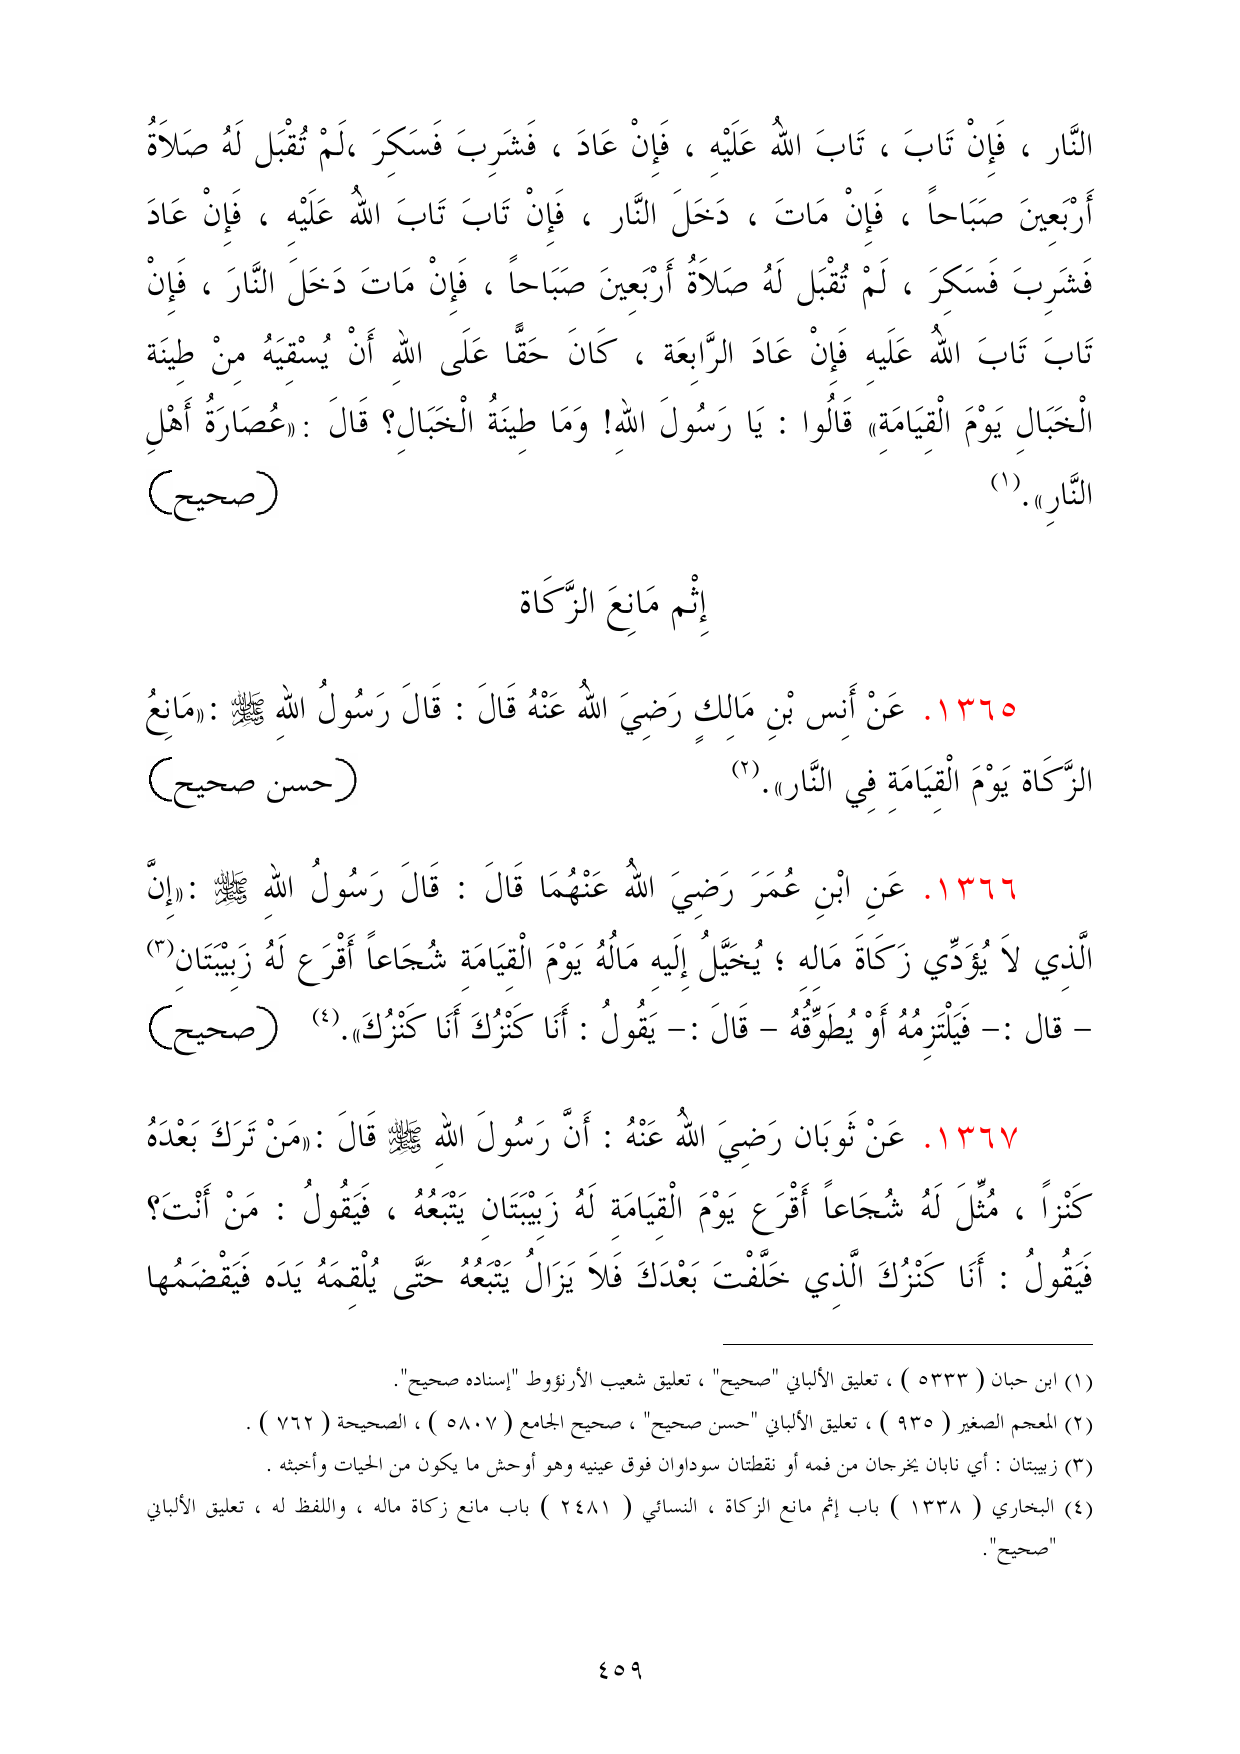 النَّار ، فَإِنْ تَابَ ، تَابَ اللهُ عَلَيْهِ ، فَإِنْ عَادَ ، فَشَرِبَ فَسَكِرَ ،لَمْ تُقْبَل لَهُ صَلاَةُ
أَرْبَعِينَ صَبَاحاً ، فَإِنْ مَاتَ ، دَخَلَ النَّار ، فَإِنْ تَابَ تَابَ اللهُ عَلَيْهِ ، فَإِنْ عَادَ
فَشَرِبَ فَسَكِرَ ، لَمْ تُقْبَل لَهُ صَلاَةُ أَرْبَعِينَ صَبَاحاً ، فَإِنْ مَاتَ دَخَلَ النَّارَ ، فَإِنْ
تَابَ تَابَ اللهُ عَلَيهِ فَإِنْ عَادَ الرَّابِعَة ، كَانَ حَقًّا عَلَى اللهِ أَنْ يُسْقِيَهُ مِنْ طِينَة
الْخَبَالِ يَوْمَ الْقِيَامَةِ» قَالُوا : يَا رَسُولَ اللهِ! وَمَا طِينَةُ الْخَبَالِ؟ قَالَ :«عُصَارَةُ أَهْلِ
النَّارِ».(١) (صحيح)
إِثْم مَانِعَ الزَّكَاة
١٣٦٥. عَنْ أَنِس بْنِ مَالِكٍ رَضِيَ اللهُ عَنْهُ قَالَ : قَالَ رَسُولُ اللهِ ﷺ :«مَانِعُ
الزَّكَاة يَوْمَ الْقِيَامَةِ فِي النَّار».(٢) (حسن صحيح)
١٣٦٦. عَنِ ابْنِ عُمَرَ رَضِيَ اللهُ عَنْهُمَا قَالَ : قَالَ رَسُولُ اللهِ ﷺ :«إِنَّ
الَّذِي لاَ يُؤَدِّي زَكَاةَ مَالِهِ ؛ يُخَيَّلُ إِلَيهِ مَالُهُ يَوْمَ الْقِيَامَةِ شُجَاعاً أَقْرَع لَهُ زَبِيْبَتَانِ(٣)
– قال :– فَيَلْتَزِمُهُ أَوْ يُطَوِّقُهُ – قَالَ :– يَقُولُ : أَنَا كَنْزُكَ أَنَا كَنْزُكَ».(٤) (صحيح)
١٣٦٧. عَنْ ثَوبَان رَضِيَ اللهُ عَنْهُ : أَنَّ رَسُولَ اللهِ ﷺ قَالَ :«مَنْ تَرَكَ بَعْدَهُ
كَنْزاً ، مُثِّلَ لَهُ شُجَاعاً أَقْرَع يَوْمَ الْقِيَامَةِ لَهُ زَبِيْبَتَانِ يَتْبَعُهُ ، فَيَقُولُ : مَنْ أَنْتَ؟
فَيَقُولُ : أَنَا كَنْزُكَ الَّذِي خَلَّفْتَ بَعْدَكَ فَلاَ يَزَالُ يَتْبَعُهُ حَتَّى يُلْقِمَهُ يَدَه فَيَقْضَمُها
(١) ابن حبان ( ٥٣٣٣ ) ، تعليق الألباني "صحيح" ، تعليق شعيب الأرنؤوط "إسناده صحيح".
(٢) المعجم الصغير ( ٩٣٥ ) ، تعليق الألباني "حسن صحيح" ، صحيح الجامع ( ٥٨٠٧ ) ، الصحيحة ( ٧٦٢ ) .
(٣) زبيبتان : أي نابان يخرجان من فمه أو نقطتان سوداوان فوق عينيه وهو أوحش ما يكون من الحيات وأخبثه .
(٤) البخاري ( ١٣٣٨ ) باب إثم مانع الزكاة ، النسائي ( ٢٤٨١ ) باب مانع زكاة ماله ، واللفظ له ، تعليق الألباني
"صحيح".
٤٥٩